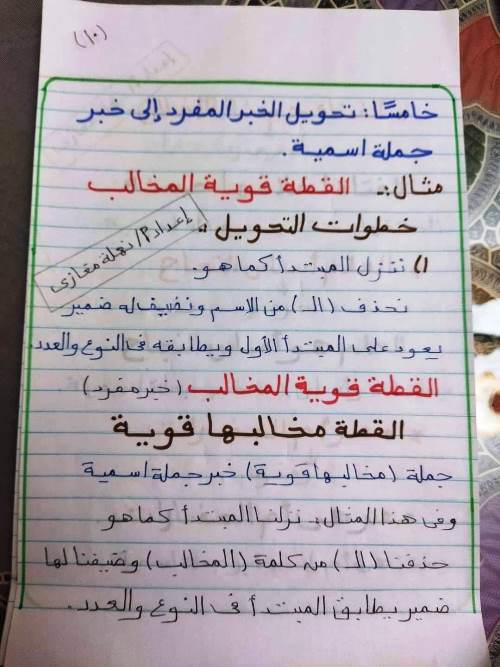 (١٠)
خامسًا: تحويل الخبر المفرد إلى خبر
جملة اسمية.
مثال:. القطة قوية المخالب
خطوات التحويل:.
إعداد P/ نهلة مغازى
١) ننزل المبتدأ كما هو.
نحذف (الـ) من الاسم ونضيف له ضمير
يعود على المبتدأ الأول ويطابقه فى النوع والعدد.
القطة قوية المخالب (خبر مفرد)
القطة مخالبها قوية
جملة (مخالبها قوية) خبر جملة اسمية
وفى هذا المثال:. نزلنا المبتدأ كما هو
حذفنا (الـ) من كلمة (المخالب) وضيفنا لها
ضمير يطابق المبتدأ فى النوع والعدد.